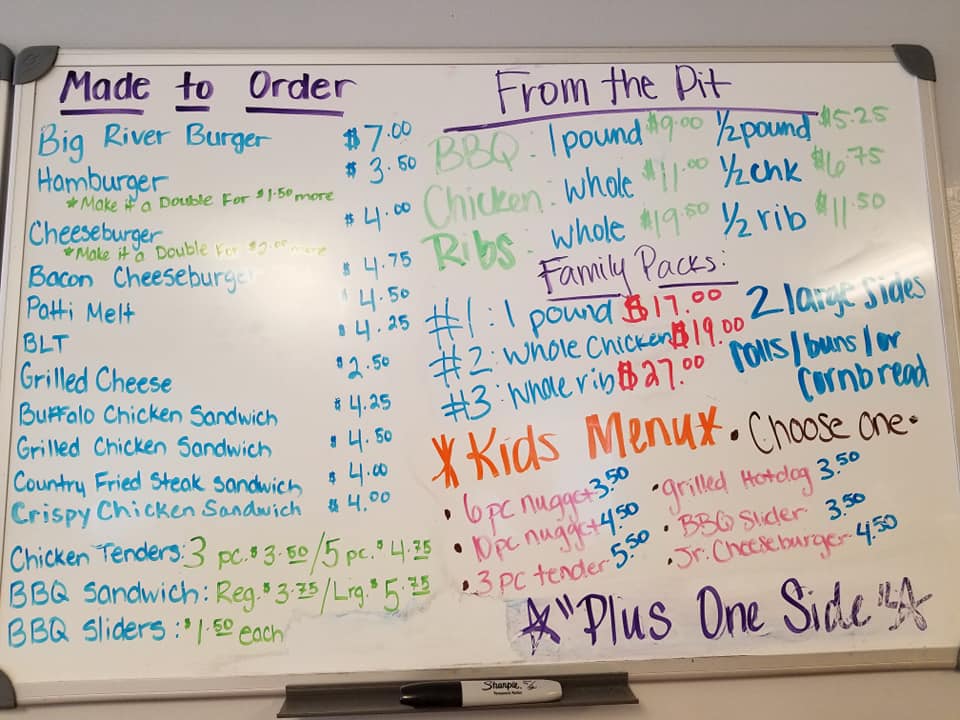 Made to Order
Big River Burger $7.00
Hamburger $3.50
*Make it a Double For $1.50 more
Cheeseburger $4.00
*Make it a Double For $2.00 more
Bacon Cheeseburger $4.75
Patti Melt $4.50
BLT $4.25
Grilled Cheese $2.50
Buffalo Chicken Sandwich $4.25
Grilled Chicken Sandwich $4.50
Country Fried Steak Sandwich $4.00
Crispy Chicken Sandwich $4.00
Chicken Tenders: 3 pc. $3.50/5 pc. $4.75
BBQ Sandwich: Reg. $3.75/Lrg. $5.75
BBQ Sliders: $1.50 each
From the Pit
BBQ: 1 pound $9.00 1/2 pound $5.25
Chicken: whole $11.00 1/2 chk $6.75
Ribs: whole $19.50 1/2 rib $11.50
Family Packs:
#1: 1 pound $17.00
#2: whole chicken $19.00
#3: whole rib $27.00
2 large sides
rolls/buns/or
cornbread
*Kids Menu* • Choose one •
• 6 pc nugget 3.50
• 10 pc nugget 4.50
• 3 pc tender 5.50
• grilled Hotdog 3.50
• BBQ Slider 3.50
• Jr. Cheeseburger 4.50
☆"Plus One Side"☆
Sharpie
Permanent Marker